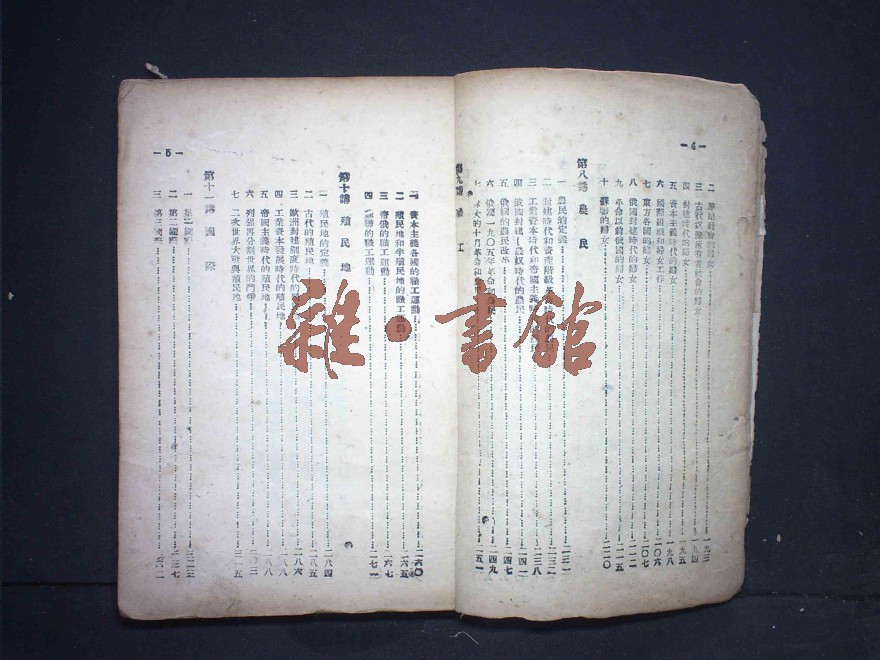 — 4 —
二 原始社會的婦女 一九三
三 古代奴隸所有者社會的婦女 一九四
四 封建時代的婦女 一九五
五 資本主義時代的婦女 一九八
六 國際組織和婦女工作 二〇六
七 東方各國的婦女 二〇七
八 俄國封建時代的婦女 二一二
九 革命以前俄國的婦女 二一五
十 蘇聯的婦女 二二〇
第八講 農民
一 農民的定義 二三一
二 封建時代和資產階級革 民 二三二
三 工業資本時代和帝國主義時 農民 二三八
四 俄國封建—農奴時代的農民 二四一
五 俄國的農民改革 二四七
六 俄國一九〇五年革命和農民 二四九
七 偉大的十月革命和農民 二五一
第九講 職工
— 5 —
一 資本主義各國的職工運動 二六〇
二 殖民地和半殖民地的職工運動 二六五
三 帝俄的職工運動 二六七
四 蘇聯的職工運動 二七一
第十講 殖民地
一 殖民地的定義 二八四
二 古代的殖民地 二八五
三 歐洲封建制度時代的殖民地 二八六
四 工業資本發展時代的殖民地 二八八
五 帝國主義時代的殖民地
六 列強再分割世界的鬥爭
七 二次世界大戰與殖民地 三一五
第十一講 國際
一 第一國際 三二三
二 第二國際 三三七
三 第三國際
雜·書館